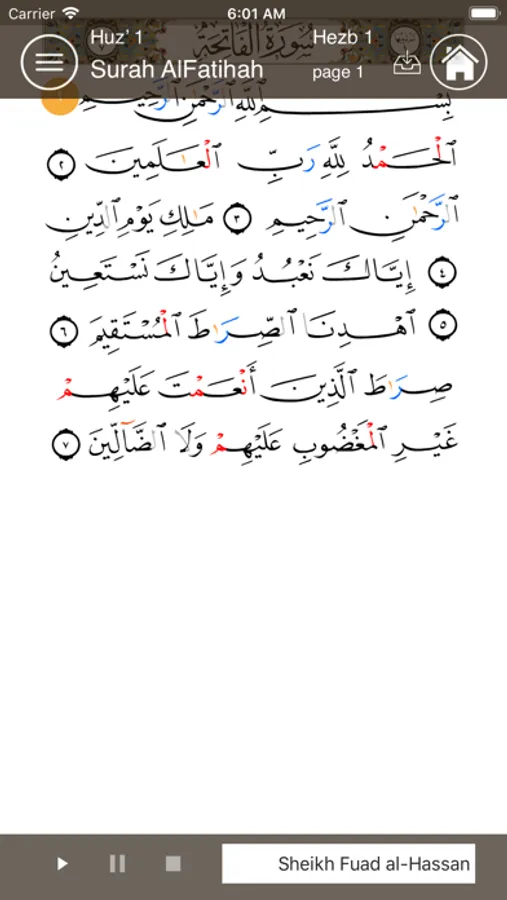 Carrier 6:01 AM
سورة الفاتحة
Huz' 1 Hezb 1
Surah AlFatihah page 1
بِسْمِ ٱللَّهِ ٱلرَّحْمَٰنِ ٱلرَّحِيمِ ١
ٱلْحَمْدُ لِلَّهِ رَبِّ ٱلْعَٰلَمِينَ ٢
ٱلرَّحْمَٰنِ ٱلرَّحِيمِ ٣ مَٰلِكِ يَوْمِ ٱلدِّينِ
٤ إِيَّاكَ نَعْبُدُ وَإِيَّاكَ نَسْتَعِينُ
٥ ٱهْدِنَا ٱلصِّرَٰطَ ٱلْمُسْتَقِيمَ ٦
صِرَٰطَ ٱلَّذِينَ أَنْعَمْتَ عَلَيْهِمْ
غَيْرِ ٱلْمَغْضُوبِ عَلَيْهِمْ وَلَا ٱلضَّآلِّينَ ٧
Sheikh Fuad al-Hassan